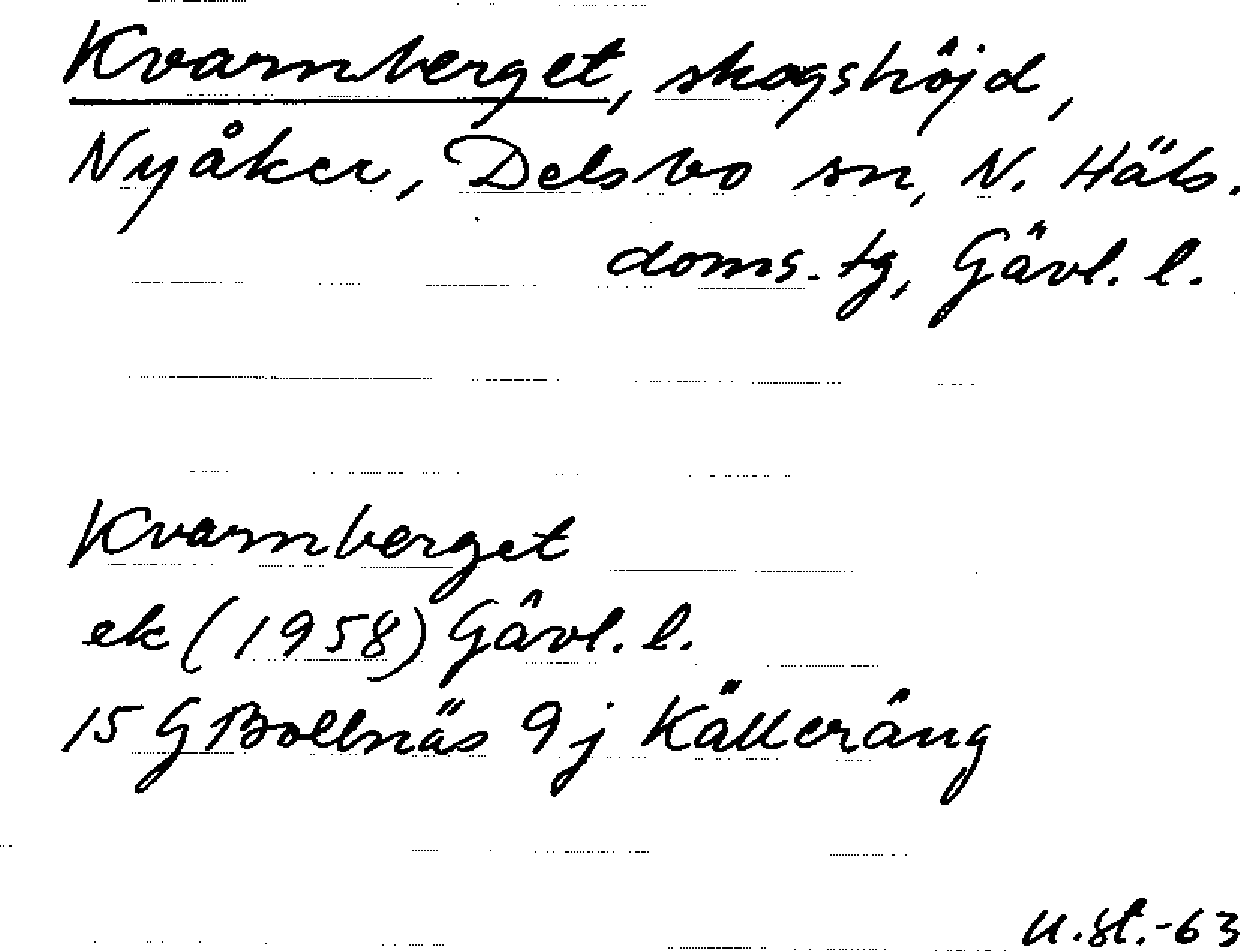 Kvarnberget, skogshöjd,
Nyåker, Delsbo sn, N. Häls.
doms. tg, Gävl. l.
Kvarnberget
ek (1958) Gävl. l.
15 G Bollnäs 9j Källeräng
U.st.-63